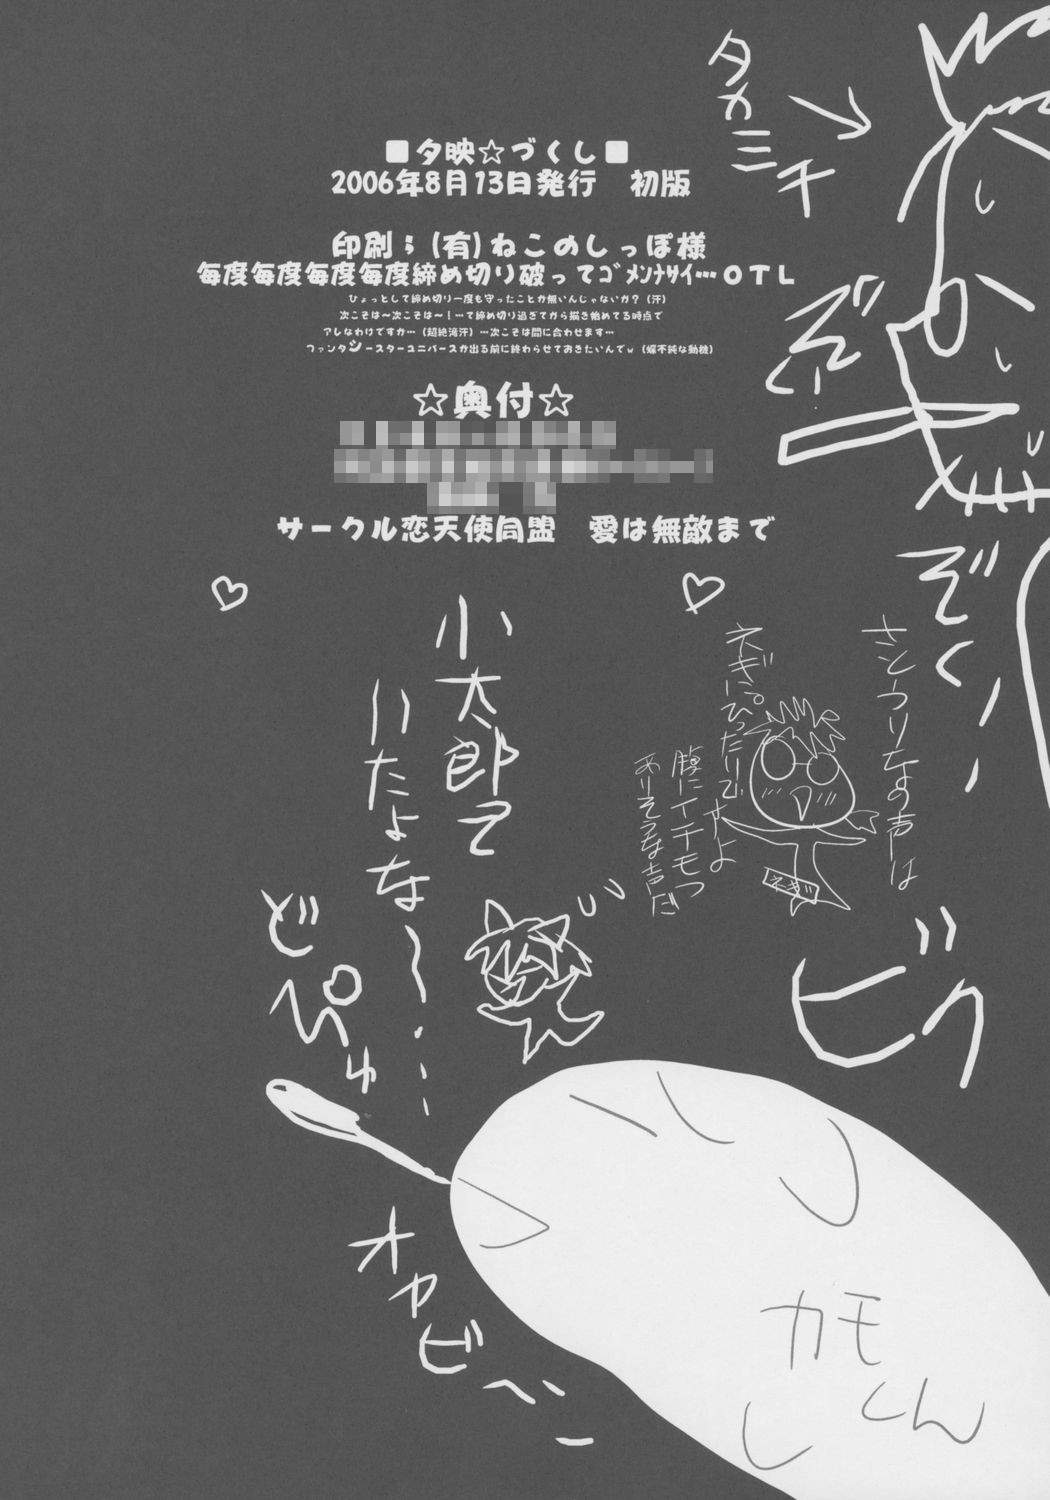 ■夕映☆づくし■
2006年8月13日発行　初版
印刷；(有)ねこのしっぽ様
毎度毎度毎度毎度締め切り破ってゴメンナサイ…OTL
ひょっとして締め切り一度も守ったことが無いんじゃないか？（汗）
次こそは〜次こそは〜！…て締め切り過ぎてから描き始めてる時点で
アレなわけですが…（超絶滝汗）…次こそは間に合わせます…
ファンタシースターユニバースが出る前に終わらせておきたいんでw（爆不純な動機）
☆奥付☆
サークル恋天使同盟　愛は無敵まで
タカミチ
ぞくり
ぞくり
さとうりなの声は
ネギにぴったりですよ
腹にイチモツ
ありそうな声だ
ネギ
小太郎て
いたよな〜…
どぴゅ
ビク
オヤビ〜ン
カモくん